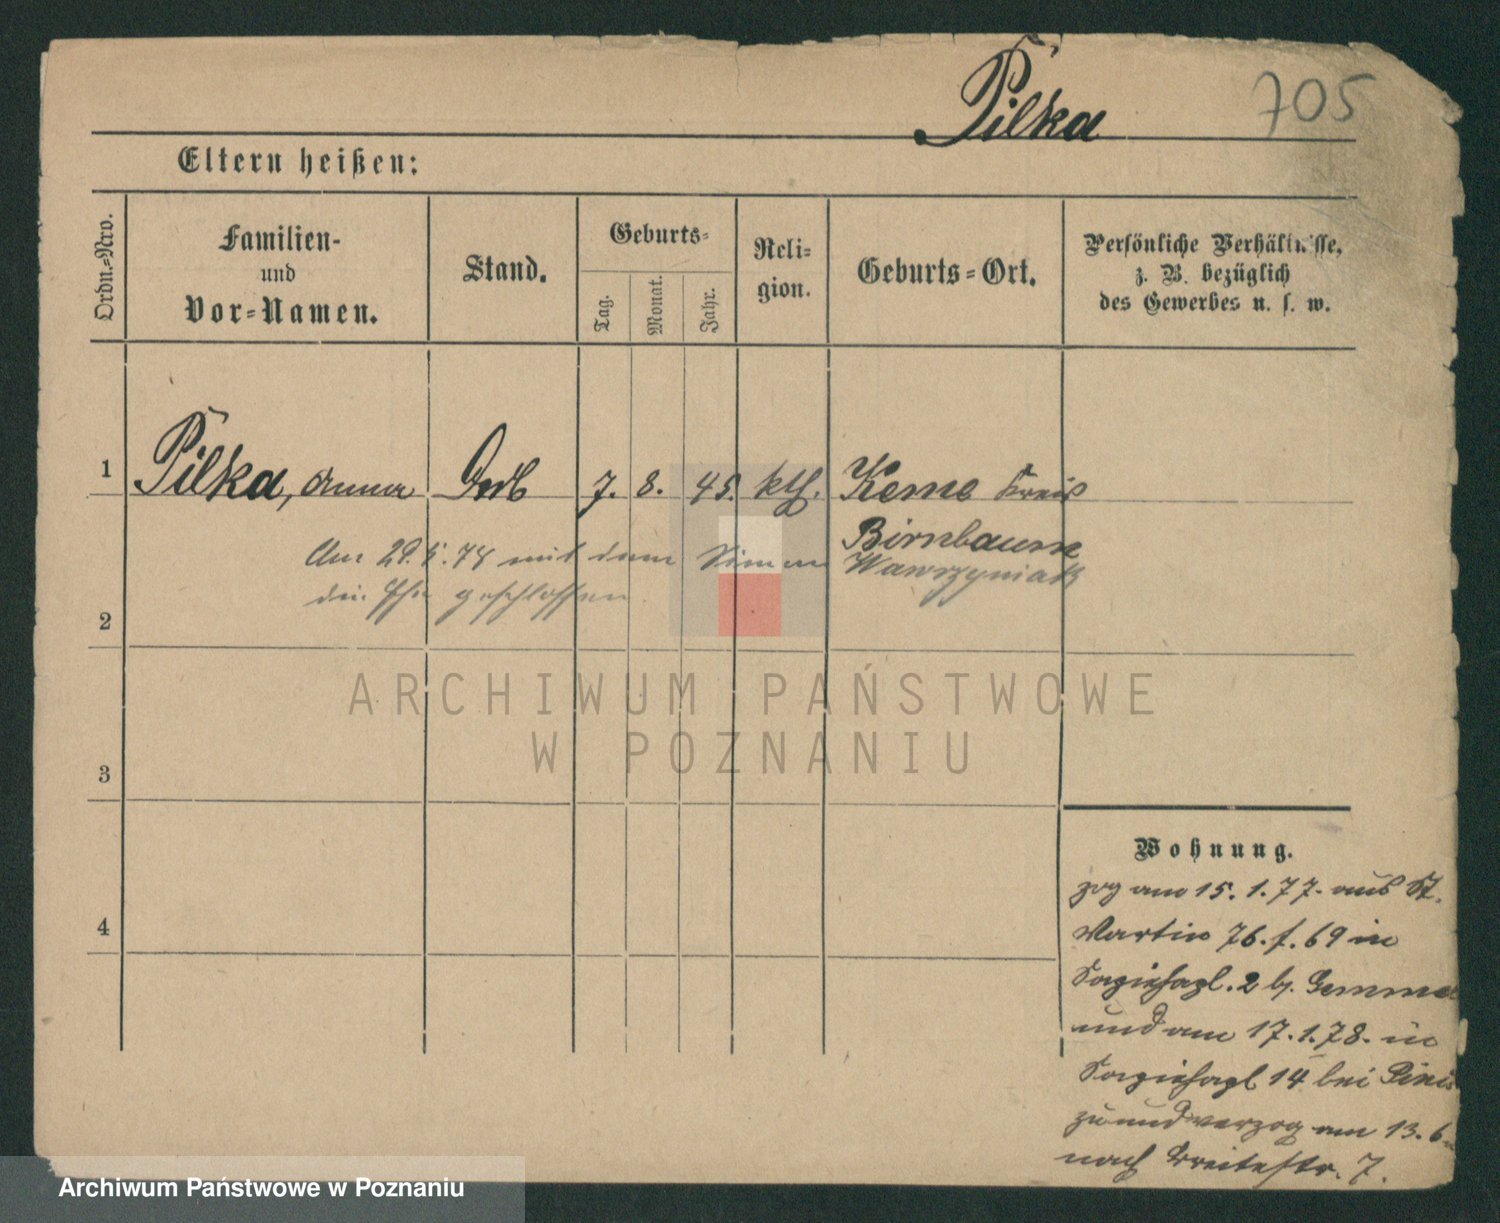 Pilka
705
Eltern heißen:
Ordn.-Nro.
Familien-
und
Vor-Namen.
Stand.
Geburts-
Tag.
Monat.
Jahr.
Reli-
gion.
Geburts-Ort.
Persönliche Verhältnisse,
z. B. bezüglich
des Gewerbes u. s. w.
1
Pilka, Anna
7. 8. 45. kth.
Kreis
Birnbaum
Am mit dem Simon Wawrzyniak
die Ehe geschlossen
2
3
4
Wohnung.
zog am 15. 1. 77. aus St.
Martin 76. f. 69 in
2 b.
und am 17. 1. 78. in
14 bei
zu und verzog am 13. 6
nach Breitestr. 7.
ARCHIWUM PAŃSTWOWE
W POZNANIU
Archiwum Państwowe w Poznaniu